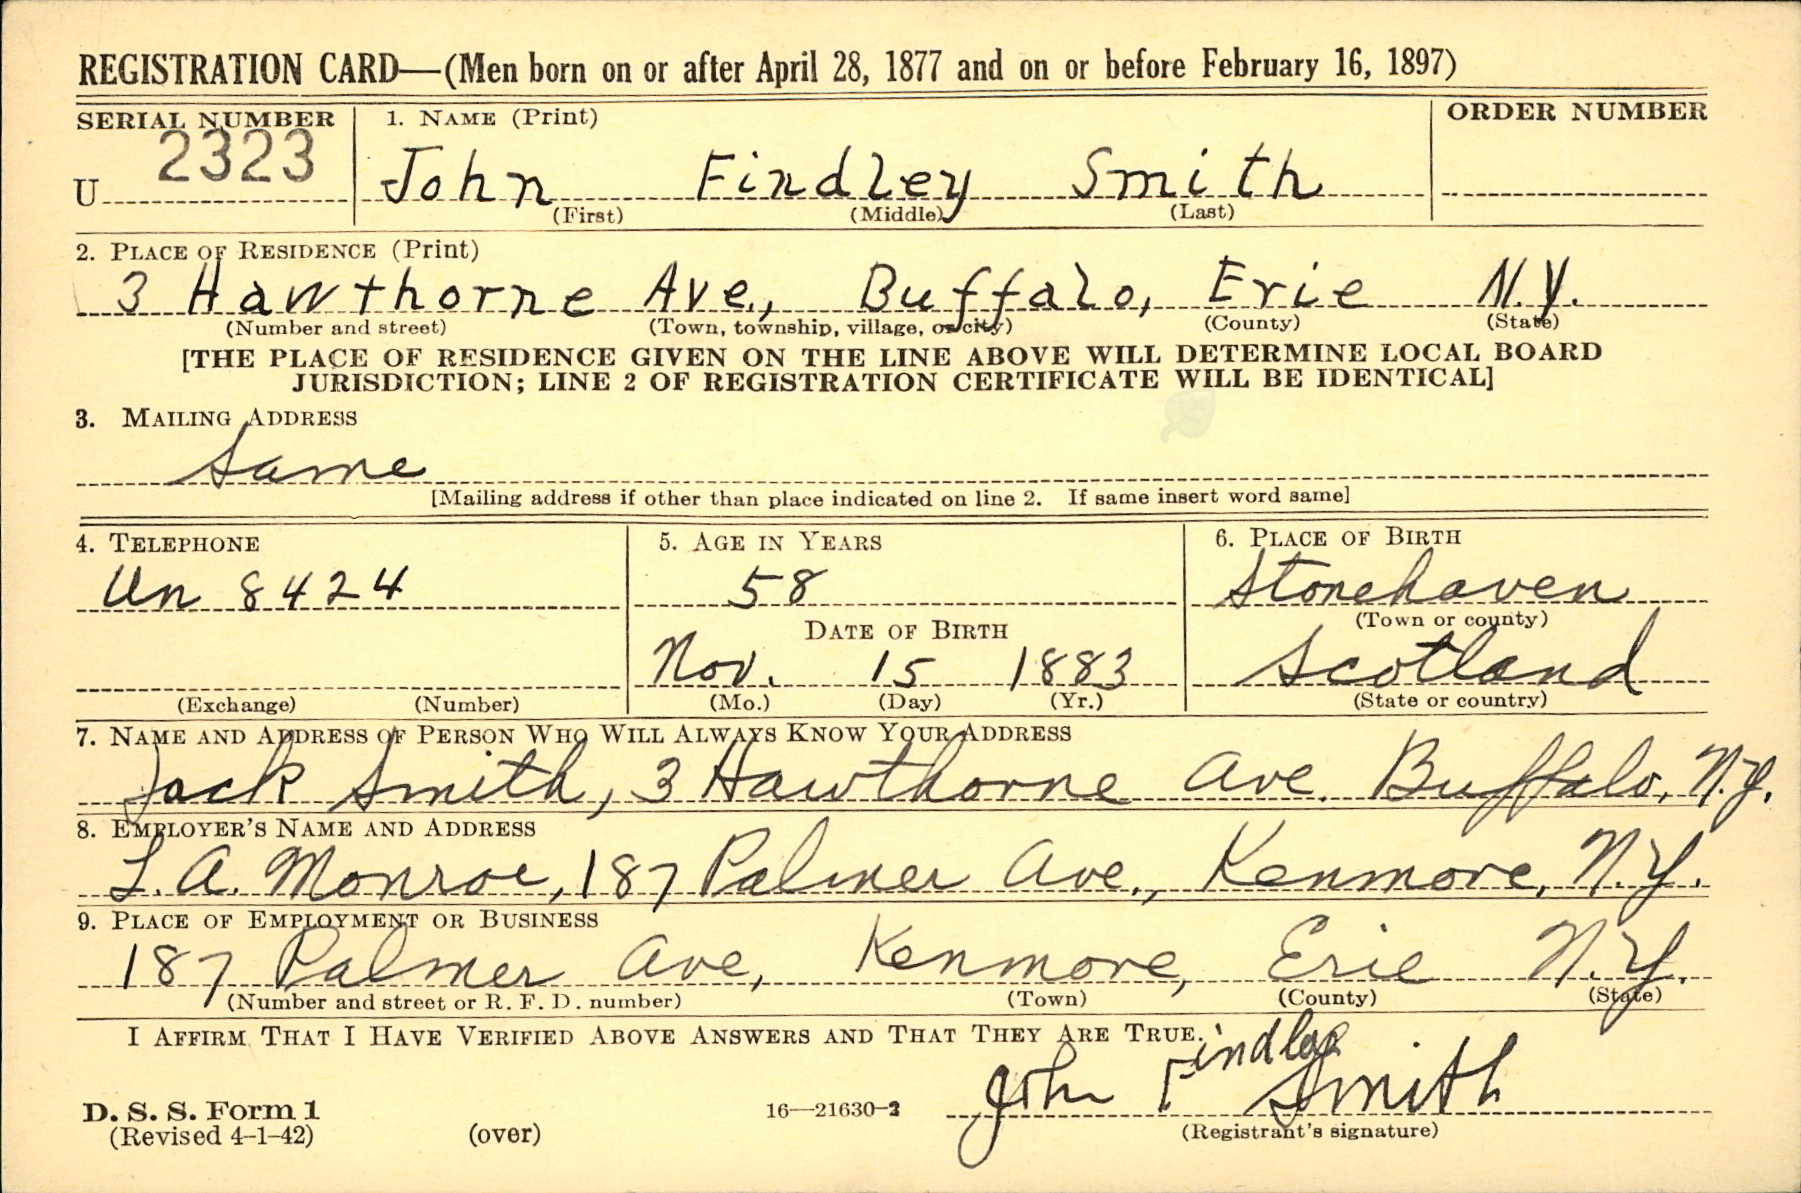 REGISTRATION CARD—(Men born on or after April 28, 1877 and on or before February 16, 1897)
SERIAL NUMBER 1. NAME (Print) ORDER NUMBER
U 2323 John Findley Smith
(First) (Middle) (Last)
2. PLACE OF RESIDENCE (Print)
3 Hawthorne Ave., Buffalo, Erie N.Y.
(Number and street) (Town, township, village, or city) (County) (State)
[THE PLACE OF RESIDENCE GIVEN ON THE LINE ABOVE WILL DETERMINE LOCAL BOARD
JURISDICTION; LINE 2 OF REGISTRATION CERTIFICATE WILL BE IDENTICAL]
3. MAILING ADDRESS
Same
[Mailing address if other than place indicated on line 2. If same insert word same]
4. TELEPHONE 5. AGE IN YEARS 6. PLACE OF BIRTH
Un 8424 58 Stonehaven
DATE OF BIRTH (Town or county)
Nov. 15 1883 Scotland
(Exchange) (Number) (Mo.) (Day) (Yr.) (State or country)
7. NAME AND ADDRESS OF PERSON WHO WILL ALWAYS KNOW YOUR ADDRESS
Jack Smith, 3 Hawthorne Ave. Buffalo, N.Y.
8. EMPLOYER'S NAME AND ADDRESS
L. A. Monroe, 187 Palmer Ave., Kenmore, N.Y.
9. PLACE OF EMPLOYMENT OR BUSINESS
187 Palmer Ave, Kenmore, Erie N.Y.
(Number and street or R. F. D. number) (Town) (County) (State)
I AFFIRM THAT I HAVE VERIFIED ABOVE ANSWERS AND THAT THEY ARE TRUE.
John Smith
D. S. S. Form 1 16—21630-2
(Revised 4-1-42) (over) (Registrant's signature)